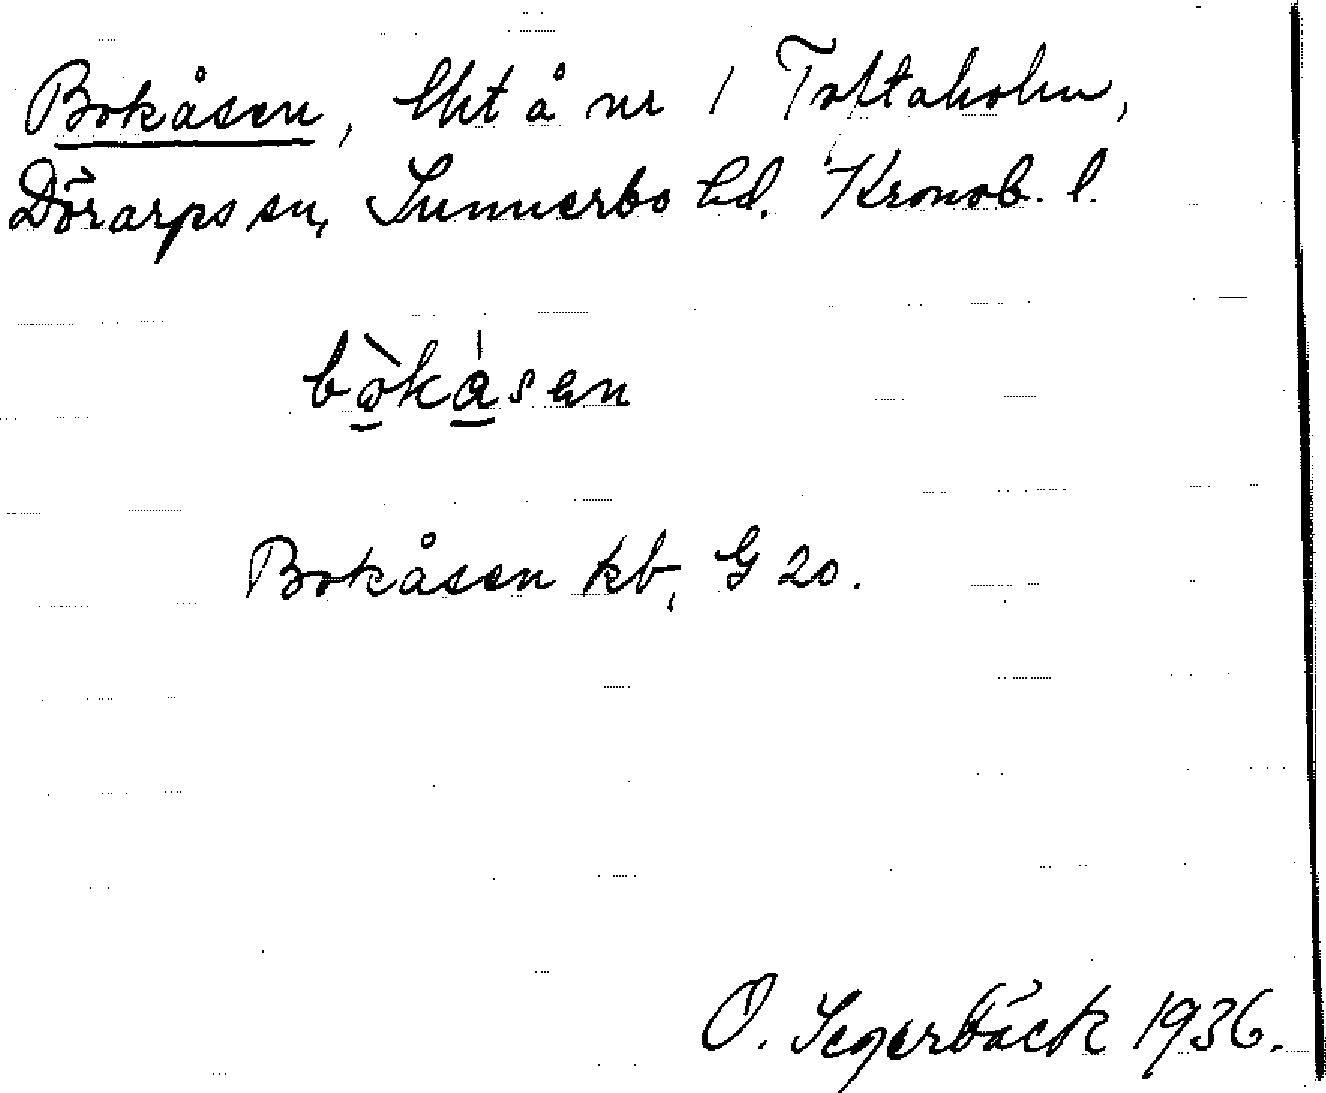 Bokåsen, lht å nr 1 Toftaholm,
Dörarps sn, Sunnerbo hd. Kronob. l.
bò̲ká̲sen
Bokåsen kb, G 20.
O. Segerbäck 1936.